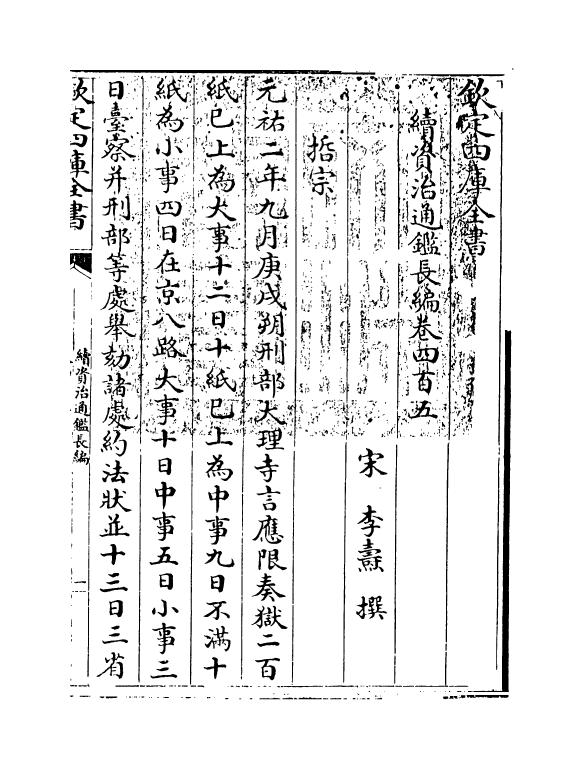 欽定四庫全書
續資治通鑑長編卷四百五
宋 李燾 撰
哲宗
元祐二年九月庚戌朔刑部大理寺言應限奏獄二百
紙已上為大事十二日十紙已上為中事九日不滿十
紙為小事四日在京八路大事十日中事五日小事三
日臺察并刑部等處舉劾諸處約法狀並十三日三省
欽定四庫全書
續資治通鑑長編
一